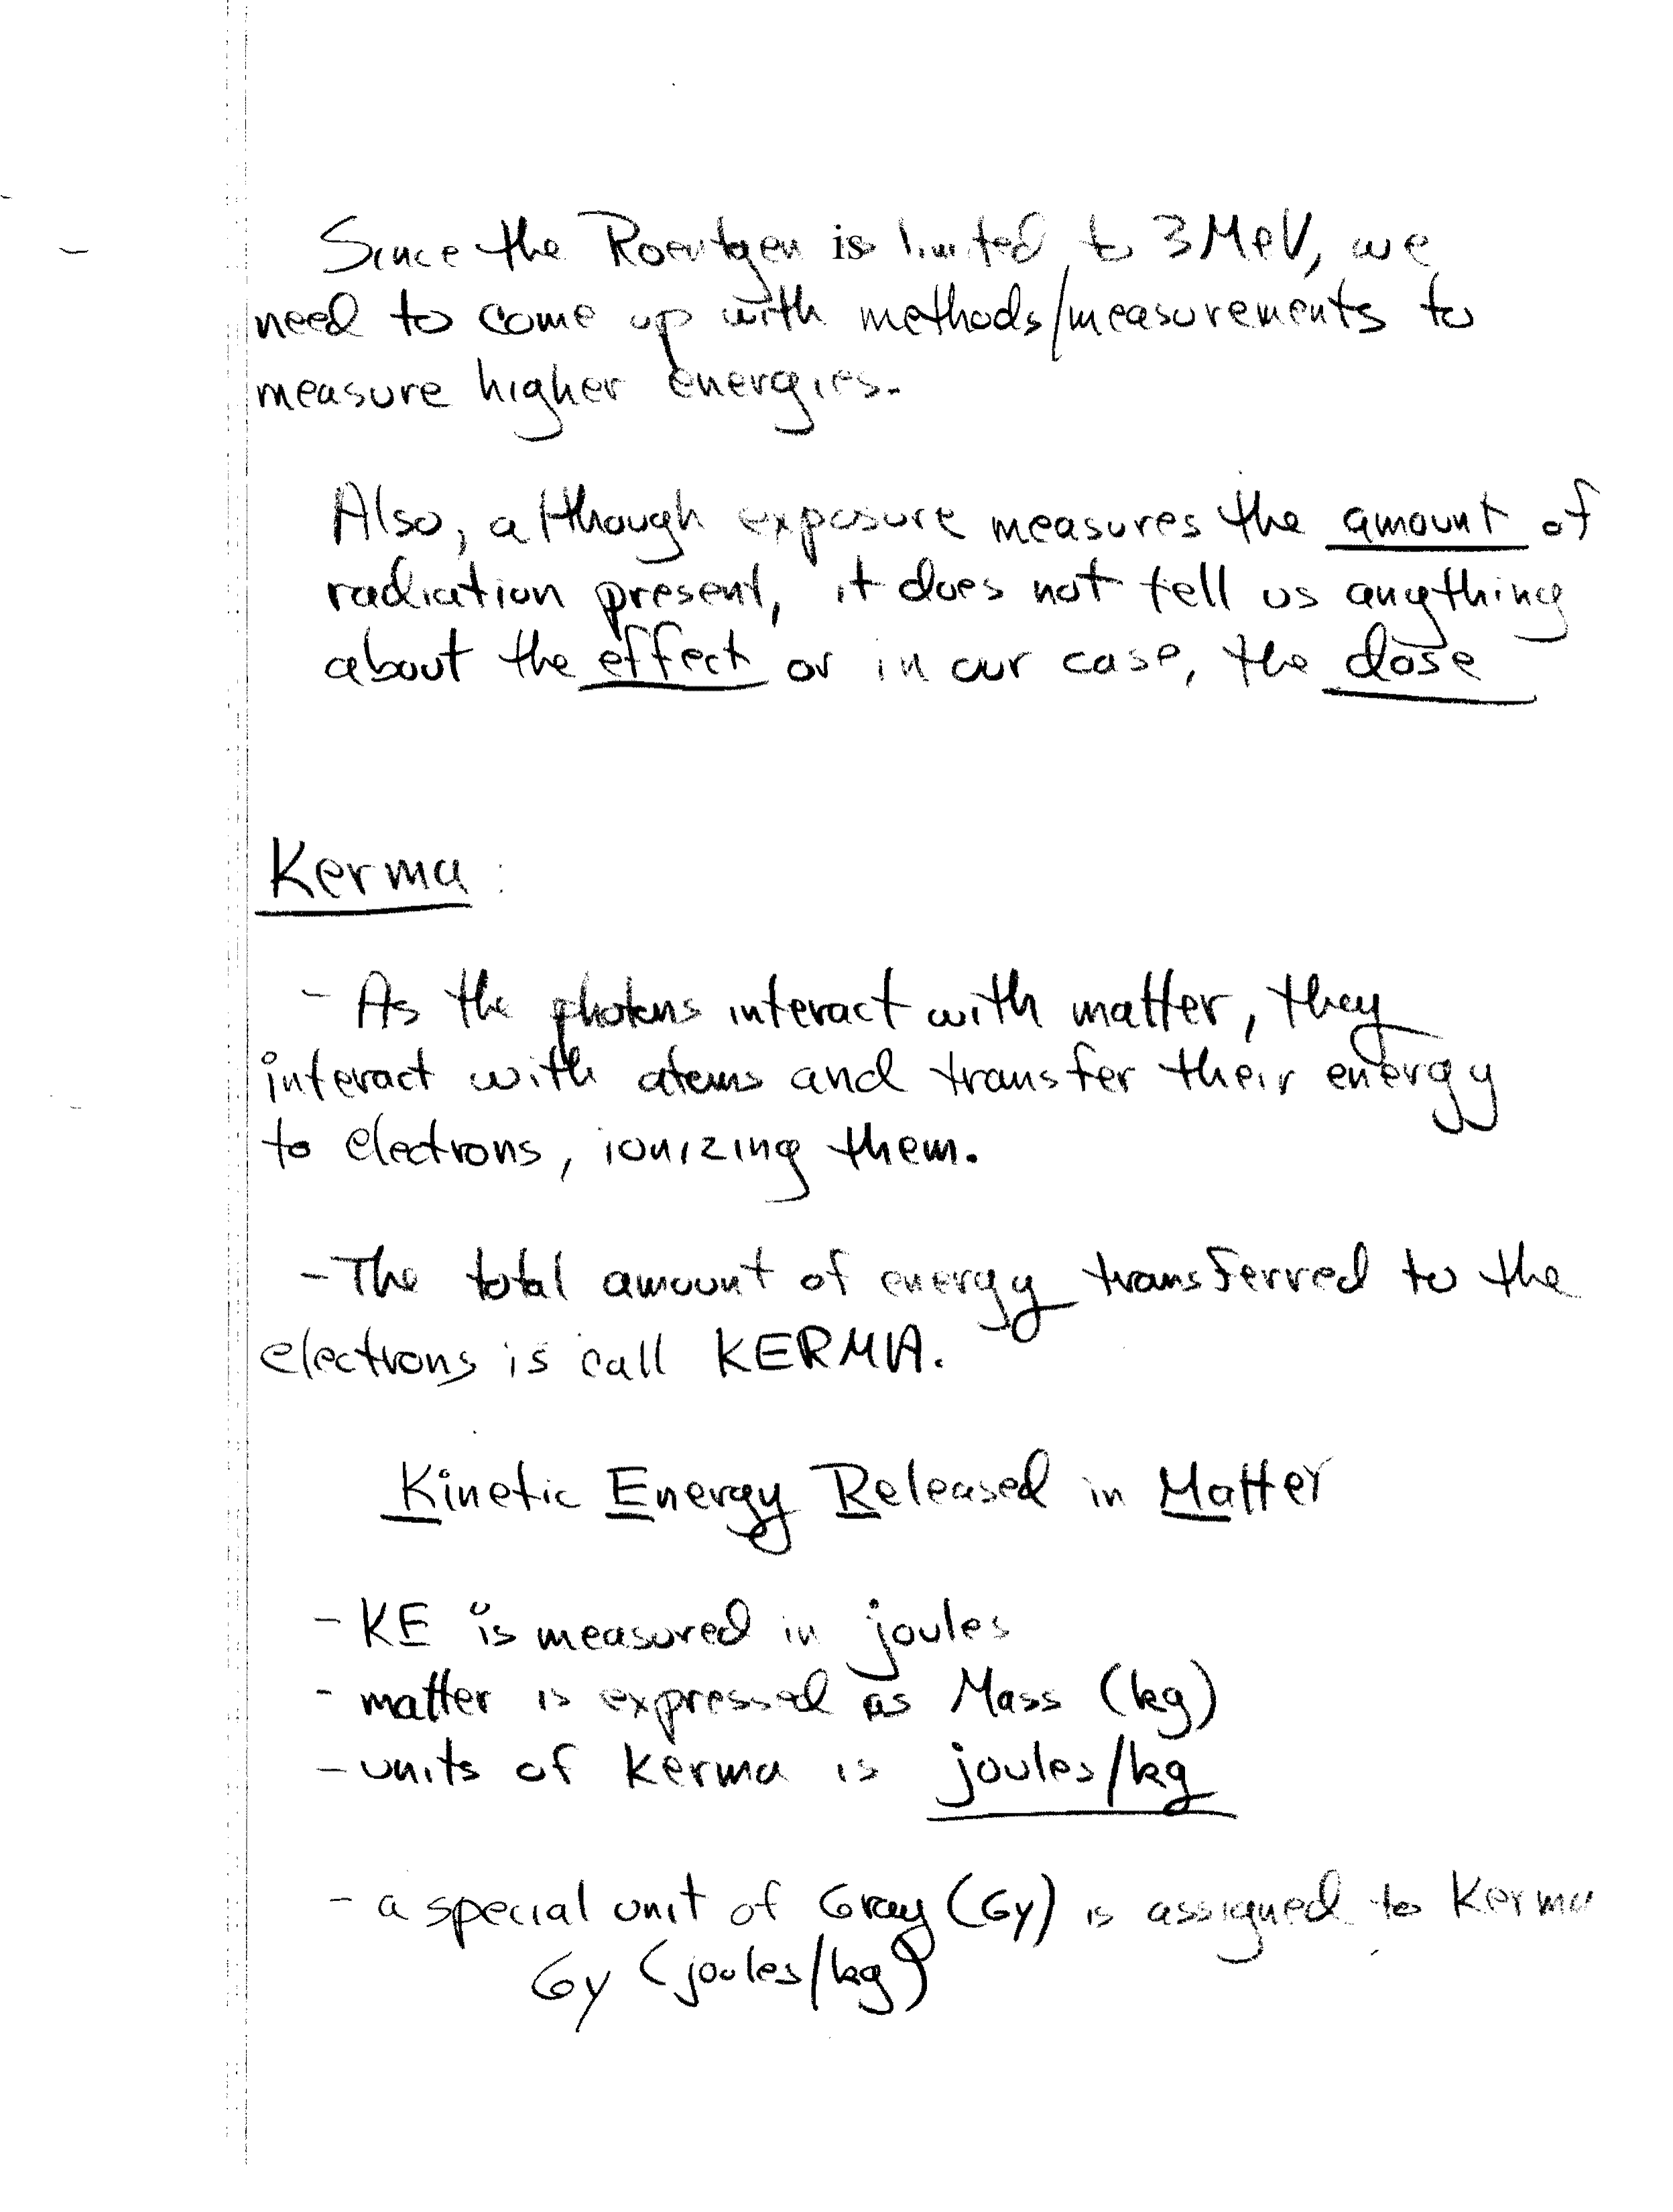 Since the Roentgen is limited to 3 MeV, we
need to come up with methods/measurements to
measure higher energies.
Also, although exposure measures the amount of
radiation present, it does not tell us anything
about the effect or in our case, the dose
Kerma:
- As the photons interact with matter, they
interact with atoms and transfer their energy
to electrons, ionizing them.
- The total amount of energy transferred to the
electrons is call KERMA.
Kinetic Energy Released in Matter
- KE is measured in joules
- matter is expressed as Mass (kg)
- units of Kerma is joules/kg
- a special unit of Gray (Gy) is assigned to Kerma
Gy (joules/kg)